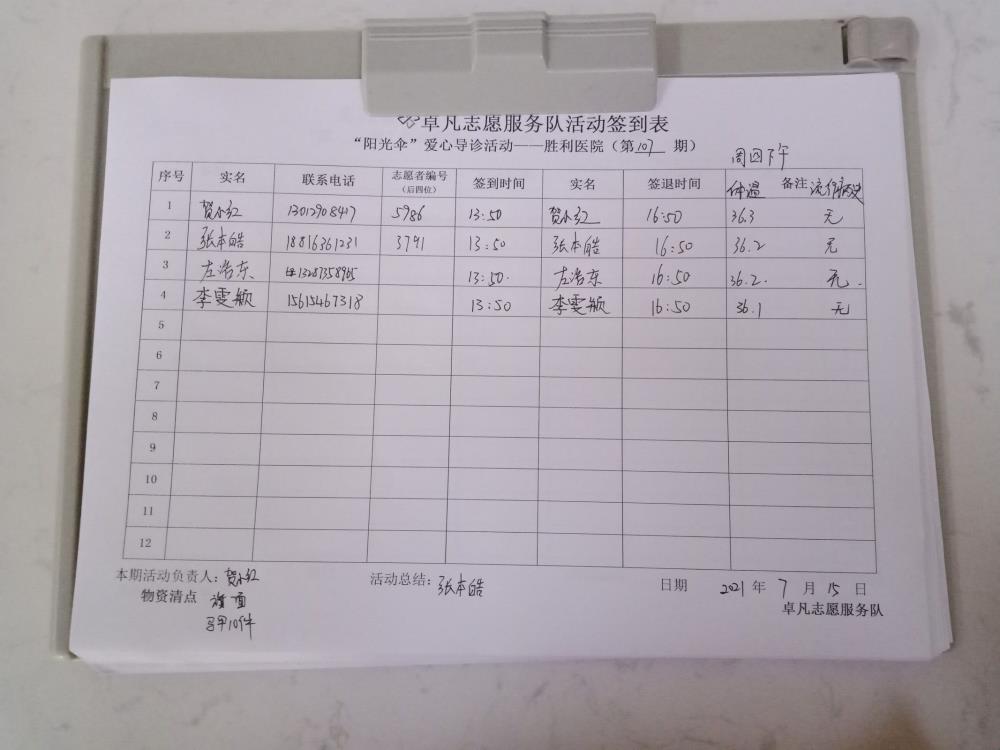 卓凡志愿服务队活动签到表
“阳光伞”爱心导诊活动——胜利医院（第107期）
周四下午
序号 实名 联系电话 志愿者编号（后四位） 签到时间 实名 签退时间 体温 备注 流行病史
1 贺小红 13012908417 5986 13:50 贺小红 16:50 36.3 无
2 张本皓 18816361231 3791 13:50 张本皓 16:50 36.2 无
3 左浩东 13287358965 13:50. 左浩东 16:50 36.2. 无.
4 李雯颖 15615467318 13:50 李雯颖 16:50 36.1 无
5
6
7
8
9
10
11
12
本期活动负责人：贺小红 活动总结：张本皓 日期 2021 年 7 月 15 日
物资清点 卓凡志愿服务队
马甲10件